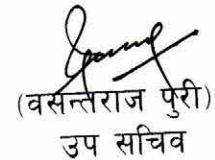 (वसन्तराज पुरी)
उप सचिव